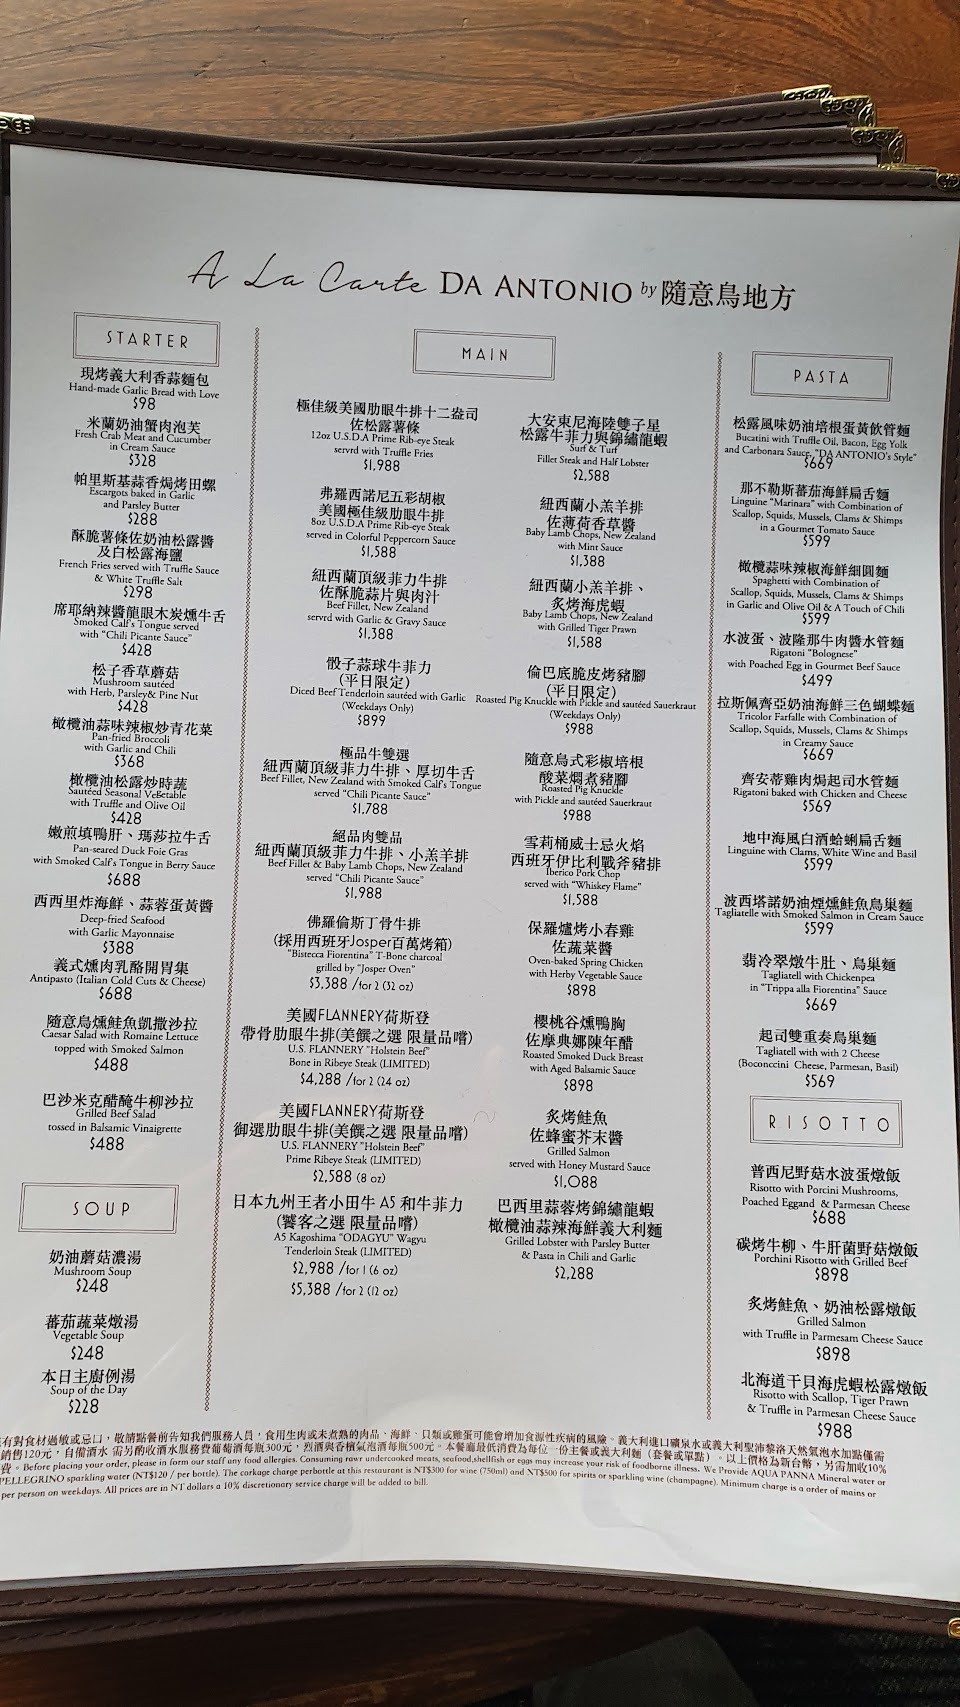 A La Carte DA ANTONIO by 隨意鳥地方
STARTER
現烤義大利香蒜麵包
Hand-made Garlic Bread with Love
$98
米蘭奶油蟹肉泡芙
Fresh Crab Meat and Cucumber
in Cream Sauce
$328
帕里斯基蒜香焗烤田螺
Escargots baked in Garlic
and Parsley Butter
$288
酥脆薯條佐奶油松露醬
及白松露海鹽
French Fries served with Truffle Sauce
& White Truffle Salt
$298
席耶納辣醬龍眼木炭燻牛舌
Smoked Calf's Tongue served
with "Chili Picante Sauce"
$428
松子香草蘑菇
Mushroom sautéed
with Herb, Parsley& Pine Nut
$428
橄欖油蒜味辣椒炒青花菜
Pan-fried Broccoli
with Garlic and Chili
$368
橄欖油松露炒時蔬
Sautéed Seasonal Vegetable
with Truffle and Olive Oil
$428
嫩煎填鴨肝、瑪莎拉牛舌
Pan-seared Duck Foie Gras
with Smoked Calf's Tongue in Berry Sauce
$688
西西里炸海鮮、蒜蓉蛋黃醬
Deep-fried Seafood
with Garlic Mayonnaise
$388
義式燻肉乳酪開胃集
Antipasto (Italian Cold Cuts & Cheese)
$688
隨意鳥燻鮭魚凱撒沙拉
Caesar Salad with Romaine Lettuce
topped with Smoked Salmon
$488
巴沙米克醋醃牛柳沙拉
Grilled Beef Salad
tossed in Balsamic Vinaigrette
$488
SOUP
奶油蘑菇濃湯
Mushroom Soup
$248
蕃茄蔬菜燉湯
Vegetable Soup
$248
本日主廚例湯
Soup of the Day
$228
MAIN
極佳級美國肋眼牛排十二盎司
佐松露薯條
12oz U.S.D.A Prime Rib-eye Steak
servrd with Truffle Fries
$1,988
弗羅西諾尼五彩胡椒
美國極佳級肋眼牛排
8oz U.S.D.A Prime Rib-eye Steak
served in Colorful Peppercorn Sauce
$1,588
紐西蘭頂級菲力牛排
佐酥脆蒜片與肉汁
Beef Fillet, New Zealand
servrd with Garlic & Gravy Sauce
$1,388
骰子蒜球牛菲力
(平日限定)
Diced Beef Tenderloin sautéed with Garlic
(Weekdays Only)
$899
極品牛雙選
紐西蘭頂級菲力牛排、厚切牛舌
Beef Fillet, New Zealand with Smoked Calf's Tongue
served "Chili Picante Sauce"
$1,788
絕品肉雙品
紐西蘭頂級菲力牛排、小羔羊排
Beef Fillet & Baby Lamb Chops, New Zealand
served "Chili Picante Sauce"
$1,988
佛羅倫斯丁骨牛排
(採用西班牙Josper百萬烤箱)
"Bistecca Fiorentina" T-Bone charcoal
grilled by "Josper Oven"
$3,388 /for 2 (32 oz)
美國FLANNERY荷斯登
帶骨肋眼牛排(美饌之選 限量品嚐)
U.S. FLANNERY "Holstein Beef"
Bone in Ribeye Steak (LIMITED)
$4,288 /for 2 (24 oz)
美國FLANNERY荷斯登
御選肋眼牛排(美饌之選 限量品嚐)
U.S. FLANNERY "Holstein Beef"
Prime Ribeye Steak (LIMITED)
$2,588 (8 oz)
日本九州王者小田牛 A5 和牛菲力
(饕客之選 限量品嚐)
A5 Kagoshima "ODAGYU" Wagyu
Tenderloin Steak (LIMITED)
$2,988 /for 1 (6 oz)
$5,388 /for 2 (12 oz)
大安東尼海陸雙子星
松露牛菲力與錦繡龍蝦
Surf & Turf
Fillet Steak and Half Lobster
$2,588
紐西蘭小羔羊排
佐薄荷香草醬
Baby Lamb Chops, New Zealand
with Mint Sauce
$1,388
紐西蘭小羔羊排、
炙烤海虎蝦
Baby Lamb Chops, New Zealand
with Grilled Tiger Prawn
$1,588
倫巴底脆皮烤豬腳
(平日限定)
Roasted Pig Knuckle with Pickle and sautéed Sauerkraut
(Weekdays Only)
$988
隨意鳥式彩椒培根
酸菜燜煮豬腳
Roasted Pig Knuckle
with Pickle and sautéed Sauerkraut
$988
雪莉桶威士忌火焰
西班牙伊比利戰斧豬排
Iberico Pork Chop
served with "Whiskey Flame"
$1,588
保羅爐烤小春雞
佐蔬菜醬
Oven-baked Spring Chicken
with Herby Vegetable Sauce
$898
櫻桃谷燻鴨胸
佐摩典娜陳年醋
Roasted Smoked Duck Breast
with Aged Balsamic Sauce
$898
炙烤鮭魚
佐蜂蜜芥末醬
Grilled Salmon
served with Honey Mustard Sauce
$1,088
巴西里蒜蓉烤錦繡龍蝦
橄欖油蒜辣海鮮義大利麵
Grilled Lobster with Parsley Butter
& Pasta in Chili and Garlic
$2,288
PASTA
松露風味奶油培根蛋黃飲管麵
Bucatini with Truffle Oil, Bacon, Egg Yolk
and Carbonara Sauce, "DA ANTONIO's Style"
$669
那不勒斯蕃茄海鮮扁舌麵
Linguine "Marinara" with Combination of
Scallop, Squids, Mussels, Clams & Shimps
in a Gourmet Tomato Sauce
$599
橄欖蒜味辣椒海鮮細圓麵
Spaghetti with Combination of
Scallop, Squids, Mussels, Clams & Shimps
in Garlic and Olive Oil & A Touch of Chili
$599
水波蛋、波隆那牛肉醬水管麵
Rigatoni "Bolognese"
with Poached Egg in Gourmet Beef Sauce
$499
拉斯佩齊亞奶油海鮮三色蝴蝶麵
Tricolor Farfalle with Combination of
Scallop, Squids, Mussels, Clams & Shimps
in Creamy Sauce
$669
齊安蒂雞肉焗起司水管麵
Rigatoni baked with Chicken and Cheese
$569
地中海風白酒蛤蜊扁舌麵
Linguine with Clams, White Wine and Basil
$599
波西塔諾奶油煙燻鮭魚鳥巢麵
Tagliatelle with Smoked Salmon in Cream Sauce
$599
翡冷翠燉牛肚、鳥巢麵
Tagliatell with Chickenpea
in "Trippa alla Fiorentina" Sauce
$669
起司雙重奏鳥巢麵
Tagliatell with with 2 Cheese
(Boconccini Cheese, Parmesan, Basil)
$569
RISOTTO
普西尼野菇水波蛋燉飯
Risotto with Porcini Mushrooms,
Poached Eggand & Parmesan Cheese
$688
碳烤牛柳、牛肝菌野菇燉飯
Porchini Risotto with Grilled Beef
$898
炙烤鮭魚、奶油松露燉飯
Grilled Salmon
with Truffle in Parmesam Cheese Sauce
$898
北海道干貝海虎蝦松露燉飯
Risotto with Scallop, Tiger Prawn
& Truffle in Parmesan Cheese Sauce
$988
有對食材過敏或忌口，敬請點餐前告知我們服務人員，食用生肉或未煮熟的肉品、海鮮、貝類或雞蛋可能會增加食源性疾病的風險。義大利進口礦泉水或義大利聖沛黎洛天然氣泡水加點僅需
銷售120元，自備酒水 需另酌收酒水服務費葡萄酒每瓶300元，烈酒與香檳氣泡酒每瓶500元。本餐廳最低消費為每位一份主餐或義大利麵（套餐或單點）。以上價格為新台幣，另需加收10%
費。Before placing your order, please in form our staff any food allergies. Consuming rawr undercooked meats, seafood,shellfish or eggs may increase your risk of foodborne illness. We Provide AQUA PANNA Mineral water or
PELLEGRINO sparkling water (NT$120 / per bottle). The corkage charge perbottle at this restaurant is NT$300 for wine (750ml) and NT$500 for spirits or sparkling wine (champagne). Minimum charge is a order of mains or
per person on weekdays. All prices are in NT dollars a 10% discretionary service charge will be added to bill.